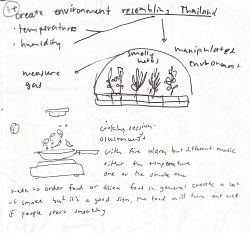 create environment resembling Thailand
• temperature
• humidity
smelly herbs
manipulated environment
measure gas
cooking session
with fire alarm but different music
either the temperature
one or the smoke one
made to order food or asian food in general create a lot
of smoke but it's a good sign, the food will turn out well
if people start smoking.